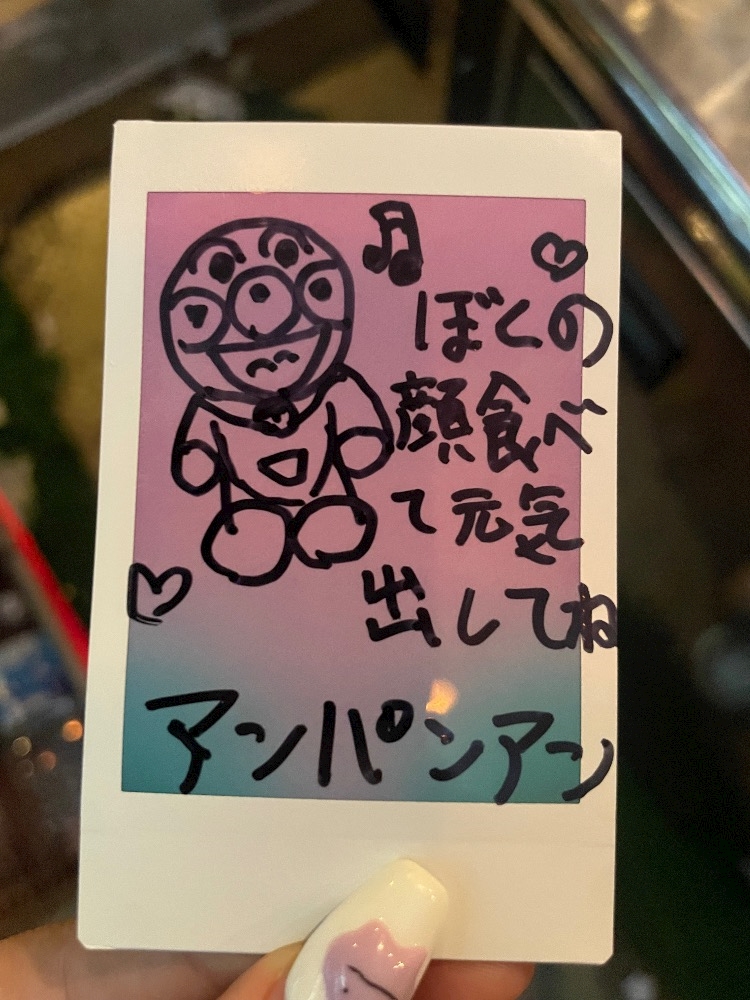 ぼくの
顔食べ
て元気
出してね
アンパンアン